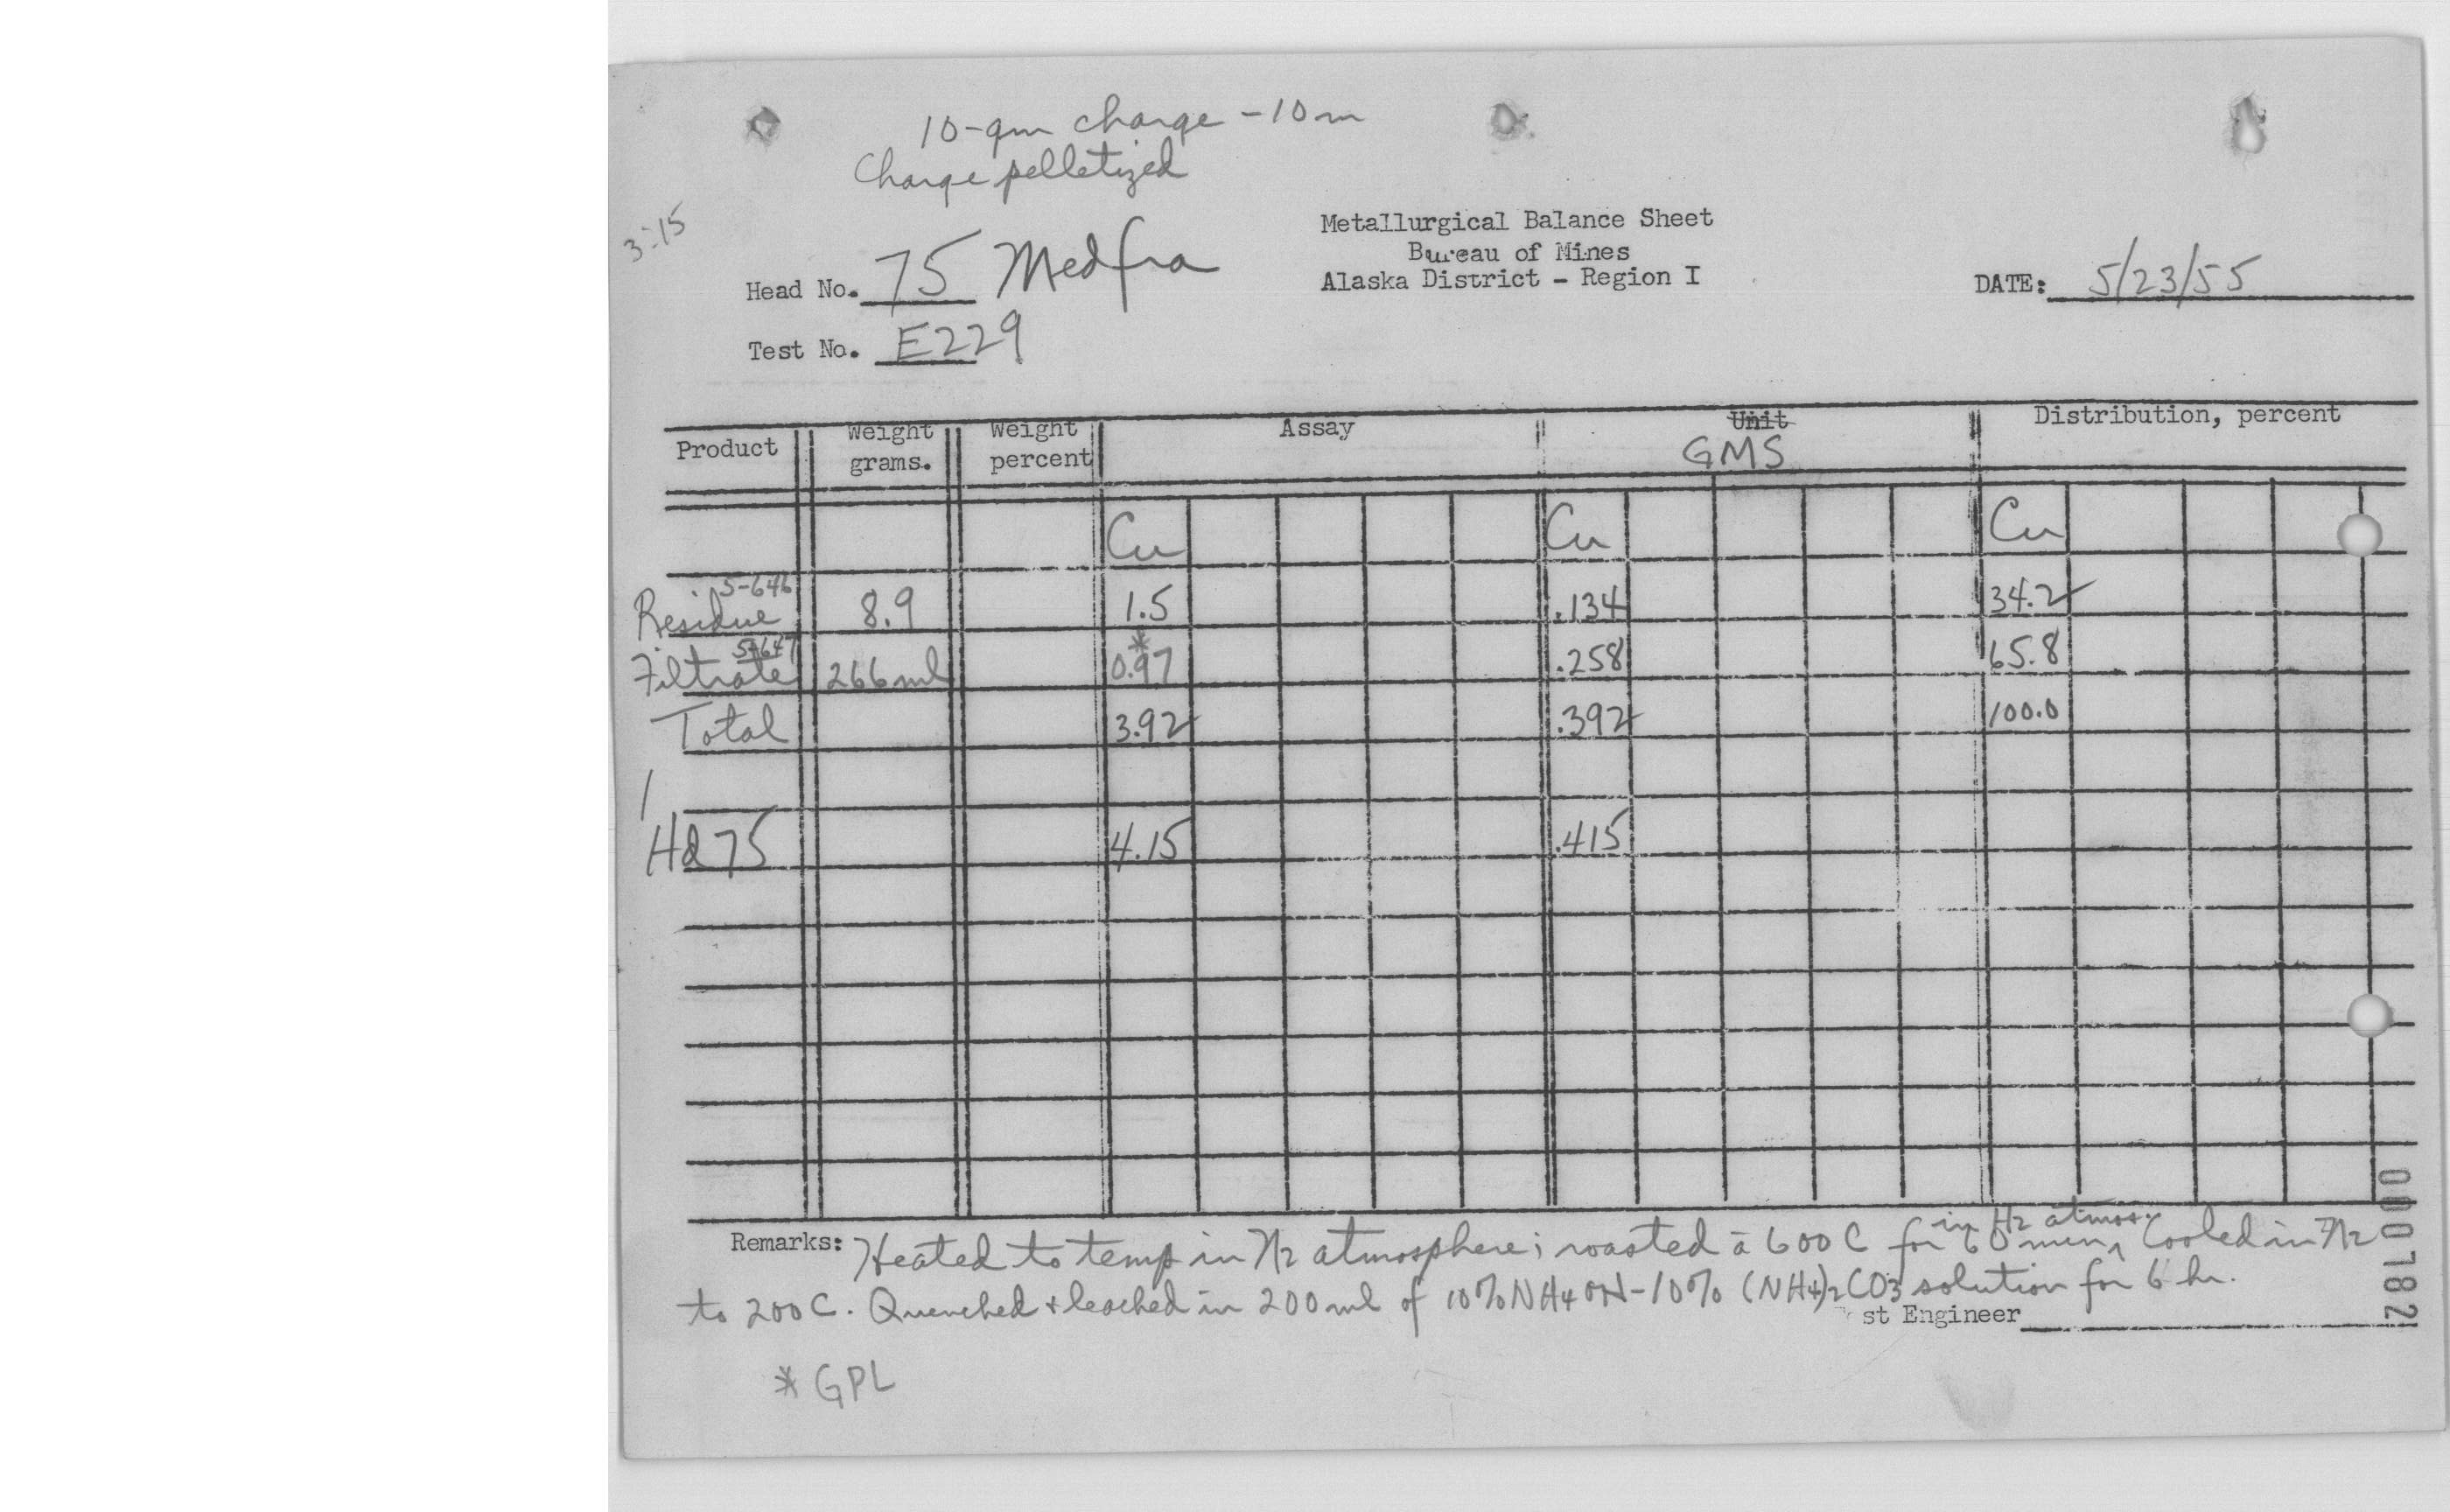 10-gm charge -10m
Charge pelletized
3:15
Metallurgical Balance Sheet
Bureau of Mines
Alaska District - Region I
Head No. 75 Medfra
DATE: 5/23/55
Test No. E229
Product Weight grams. Weight percent Assay Unit GMS Distribution, percent
Cu Cu Cu
Residue 5-646 8.9 1.5 .134 34.2
Filtrate 5-647 266ml 0.97* .258 65.8
Total 3.92 .392 100.0
Hd 75 4.15 .415
Remarks: Heated to temp in N2 atmosphere; roasted a 600 C for 60 min in H2 atmos. Cooled in N2
to 200 C. Quenched + leached in 200 ml of 10% NH4OH-10% (NH4)2CO3 solution for 6 hr.
st Engineer
* GPL
000782